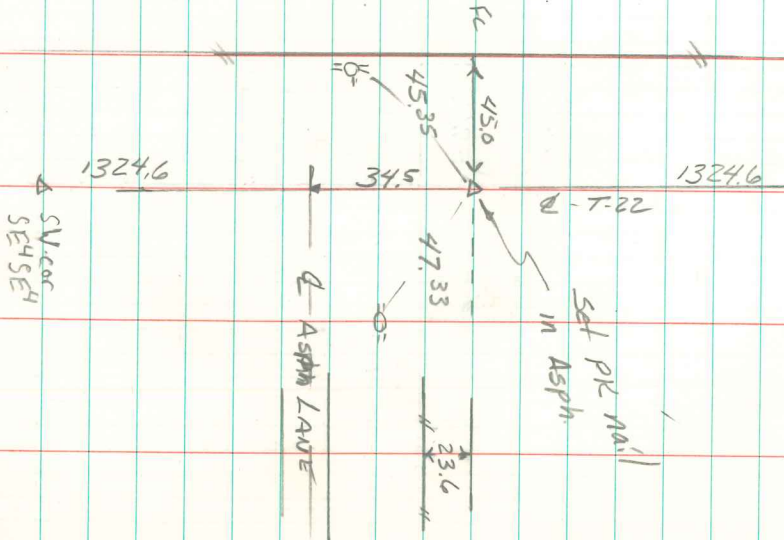 FC
45.0
45.35
1324.6
34.5
1324.6
℄ - T-22
SW. cor
SE4SE4
47.33
Set PK nail
in Asph.
℄ Asph LANE
23.6